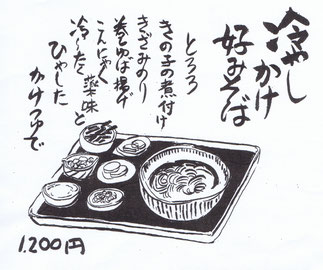 冷やし
かけ
好みそば
とろろ
きのこの煮付け
きざみのり
巻ゆば揚げ
こんにゃく
冷〜たく薬味と
ひやした
かけつゆで
1.200円